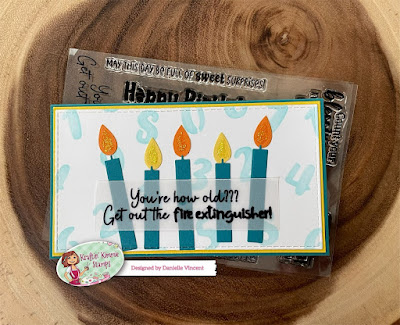 MAY THIS DAY BE FULL OF sweet SURPRISES!
Happy
You're how old???
Get out the fire extinguisher!
Kraftin' Kimmie
Stamps
Designed by Danielle Vincent